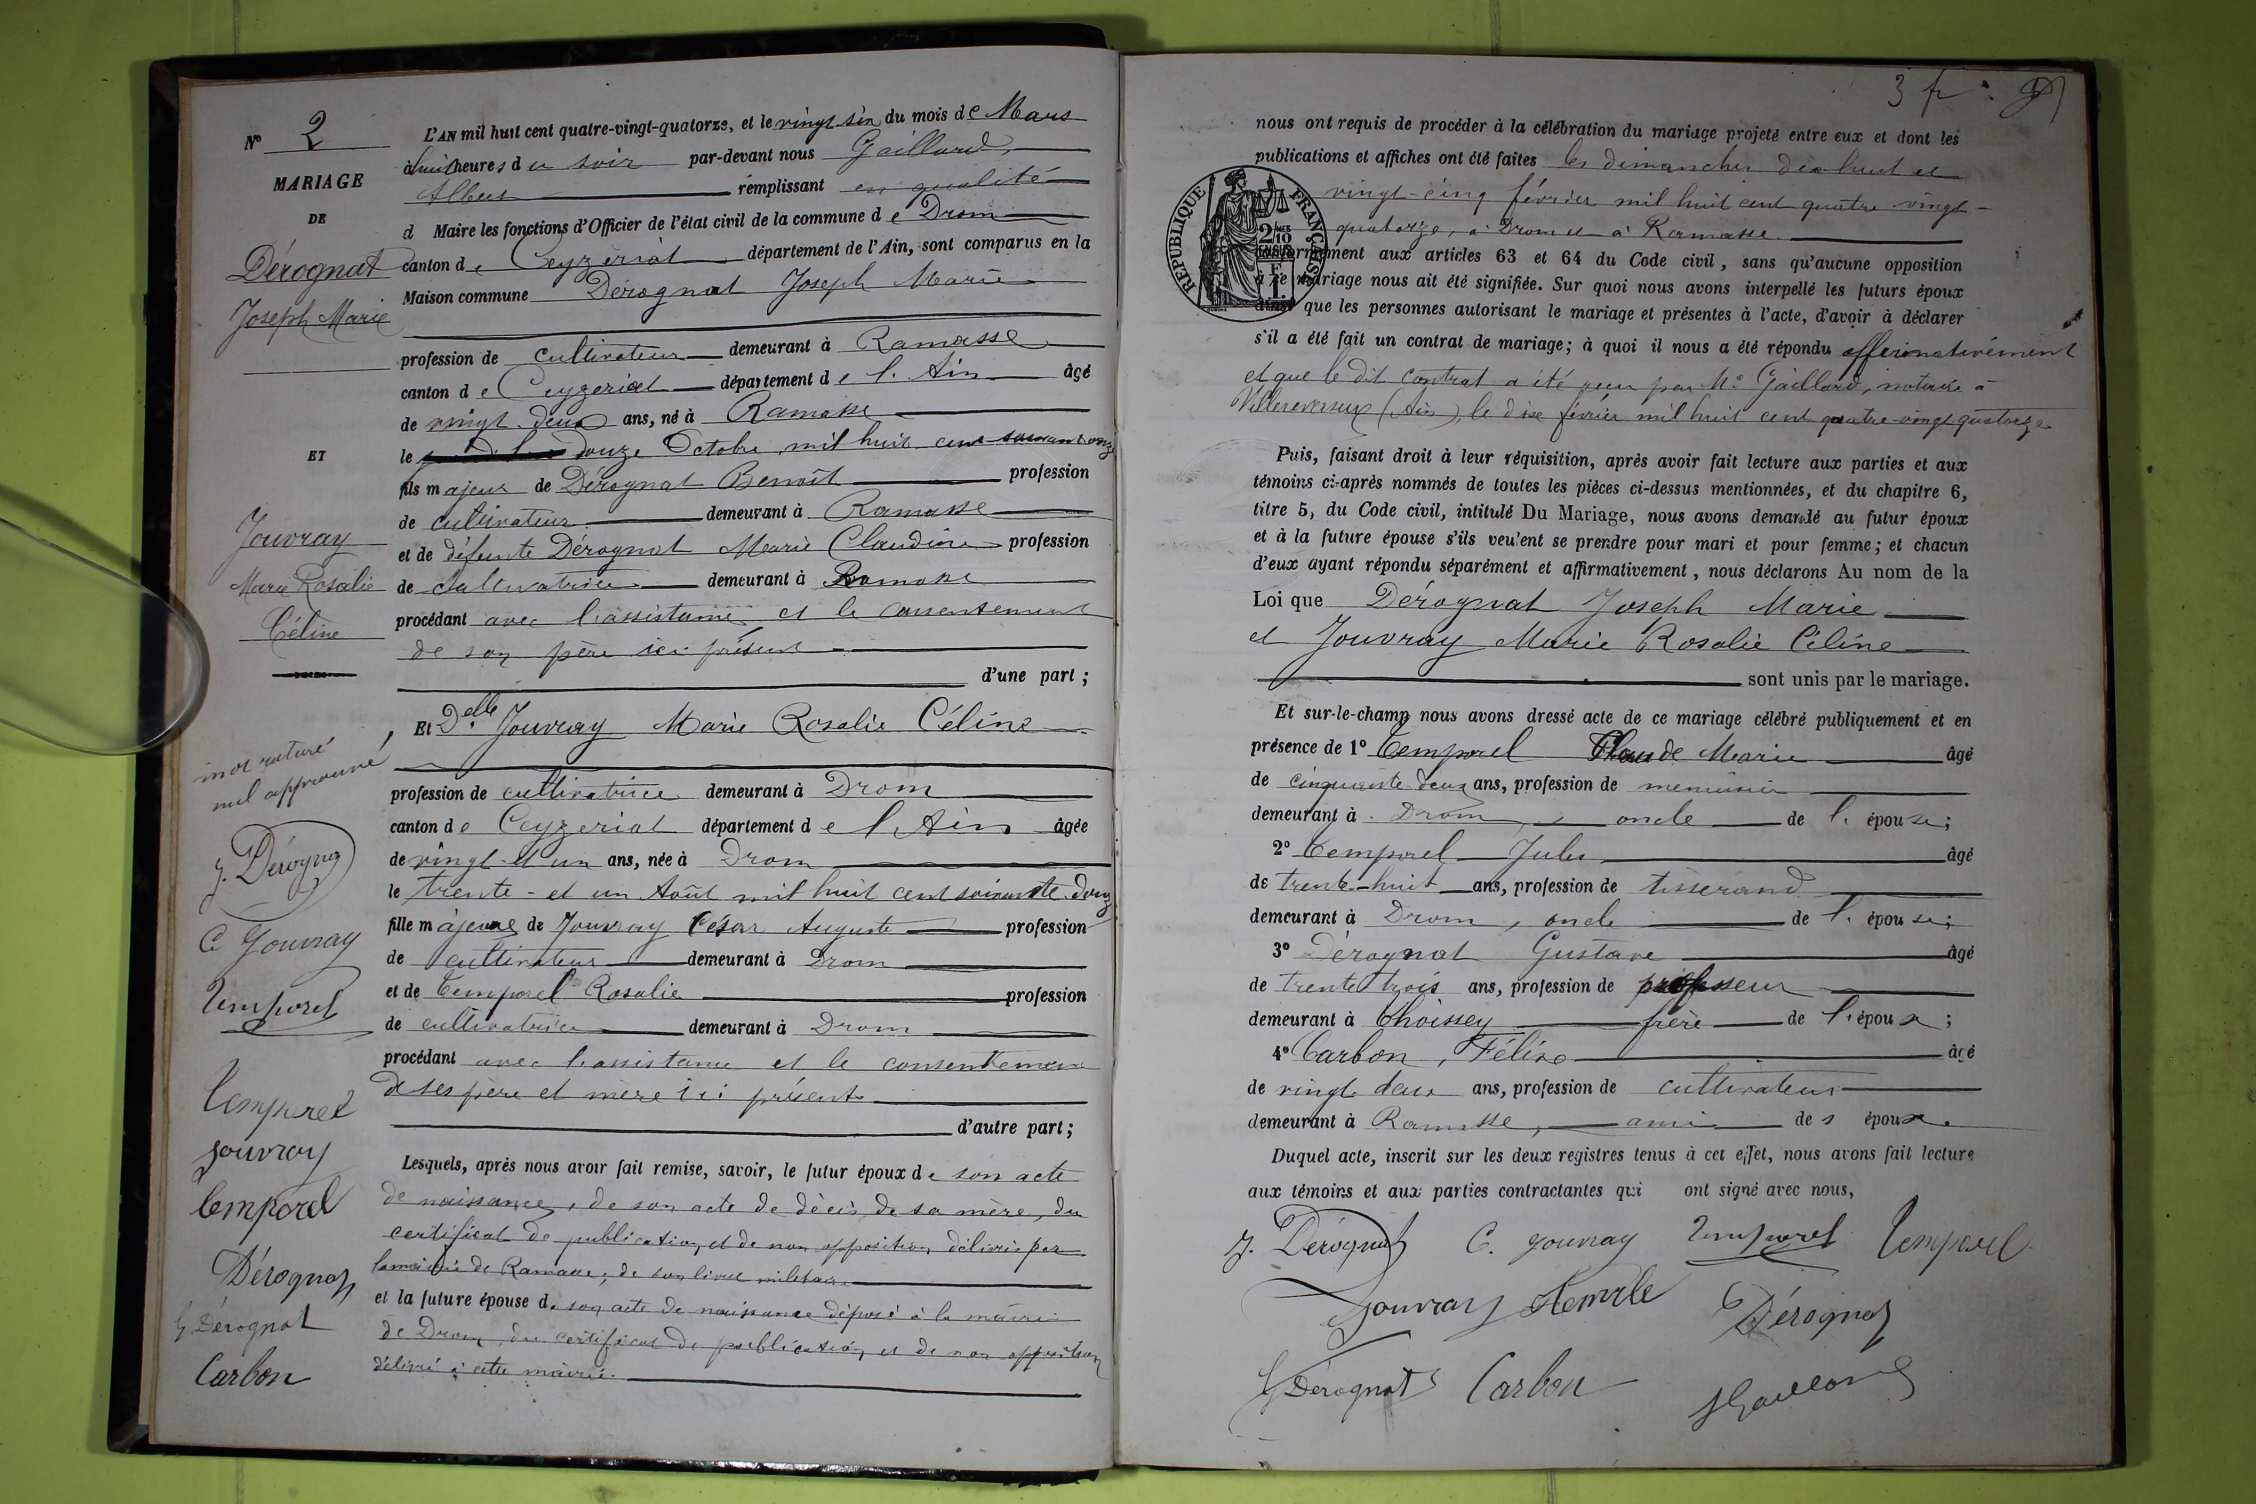 N° 2
MARIAGE
DE
Dérognat
Joseph Marie
ET
Jouvray
Marie Rosalie
Céline
mot raturé
nul approuvé
J. Dérognat
C Jouvray
Temporel
Temporel
Jouvray
Temporel
Dérognat
G Dérognat
Carbon
L'AN mil huit cent quatre-vingt-quatorze, et le vingt six du mois de Mars
à huit heures du soir par-devant nous Gaillard,
Albert remplissant en qualité
d Maire les fonctions d'Officier de l'état civil de la commune de Drom
canton de Ceyzériat département de l'Ain, sont comparus en la
Maison commune Dérognat Joseph Marie
profession de cultivateur demeurant à Ramasse
canton de Ceyzeriat département de l'Ain âgé
de vingt-deux ans, né à Ramasse
le douze Octobre mil huit cent soixante onze
fils majeur de Dérognat Benoît profession
de cultivateur demeurant à Ramasse
et de défunte Dérognat Marie Claudine profession
de cultivatrice demeurant à Ramasse
procédant avec l'assistance et le consentement
de son père ici présent
d'une part ;
Et Delle Jouvray Marie Rosalie Céline
profession de cultivatrice demeurant à Drom
canton de Ceyzeriat département de l'Ain âgée
de vingt et un ans, née à Drom
le trente-et un Août mil huit cent soixante-douze
fille majeure de Jouvray César Auguste profession
de cultivateur demeurant à Drom
et de Temporel Rosalie profession
de cultivatrice demeurant à Drom
procédant avec l'assistance et le consentement
de ses père et mère ici présents
d'autre part ;
Lesquels, après nous avoir fait remise, savoir, le futur époux de son acte
de naissance, de son acte de décès de sa mère, du
certificat de publication et de non opposition délivré par
la mairie de Ramasse, de son livret militaire
et la future épouse de son acte de naissance déposé à la mairie
de Drom, du certificat de publication et de non opposition
délivré à cette mairie.
3 fr
nous ont requis de procéder à la célébration du mariage projeté entre eux et dont les
publications et affiches ont été faites les dimanches dix-huit et
vingt-cinq février mil huit cent quatre-vingt-
quatorze, à Drom et à Ramasse.
RÉPUBLIQUE FRANÇAISE
2/10
EN SUS
1 F.
conformément aux articles 63 et 64 du Code civil, sans qu'aucune opposition
à ce mariage nous ait été signifiée. Sur quoi nous avons interpellé les futurs époux
ainsi que les personnes autorisant le mariage et présentes à l'acte, d'avoir à déclarer
s'il a été fait un contrat de mariage; à quoi il nous a été répondu affirmativement
et que le dit contrat a été reçu par Me Gaillard, notaire à
Villereversure (Ain), le dix février mil huit cent quatre-vingt quatorze
Puis, faisant droit à leur réquisition, après avoir fait lecture aux parties et aux
témoins ci-après nommés de toutes les pièces ci-dessus mentionnées, et du chapitre 6,
titre 5, du Code civil, intitulé Du Mariage, nous avons demandé au futur époux
et à la future épouse s'ils veulent se prendre pour mari et pour femme; et chacun
d'eux ayant répondu séparément et affirmativement, nous déclarons Au nom de la
Loi que Dérognat Joseph Marie
et Jouvray Marie Rosalie Céline
sont unis par le mariage.
Et sur-le-champ nous avons dressé acte de ce mariage célébré publiquement et en
présence de 1° Temporel Claude Marie âgé
de cinquante deux ans, profession de menuisier
demeurant à Drom, oncle de l'épouse;
2° Temporel Jules âgé
de trente-huit ans, profession de tisserand
demeurant à Drom, oncle de l'épouse;
3° Dérognat Gustave âgé
de trente trois ans, profession de professeur
demeurant à Thoissey frère de l'époux;
4° Carbon, Félix âgé
de vingt deux ans, profession de cultivateur
demeurant à Ramasse, ami des époux.
Duquel acte, inscrit sur les deux registres tenus à cet effet, nous avons fait lecture
aux témoins et aux parties contractantes qui ont signé avec nous,
J. Dérognat C. Jouvray Temporel Temporel
Jouvray Dérognat
G Dérognat Carbon Gaillard